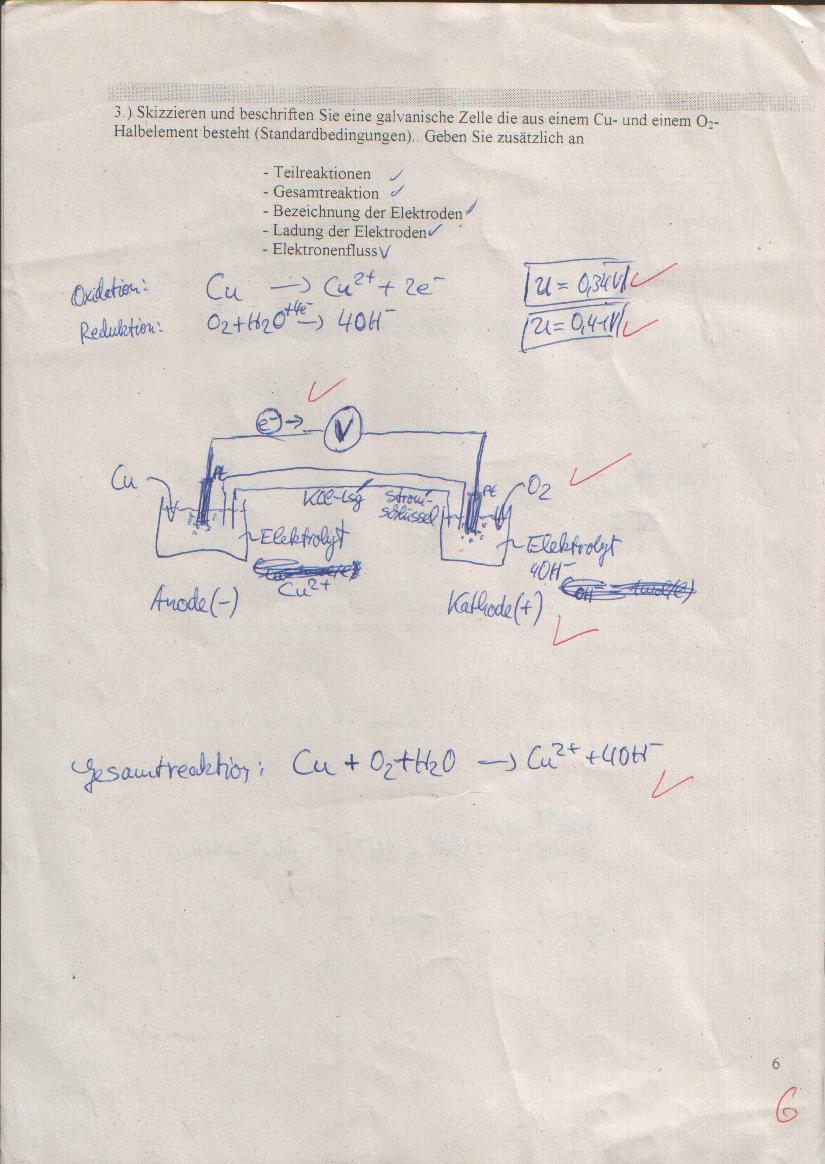 3.) Skizzieren und beschriften Sie eine galvanische Zelle die aus einem Cu- und einem O₂-
Halbelement besteht (Standardbedingungen).. Geben Sie zusätzlich an
- Teilreaktionen ✓
- Gesamtreaktion ✓
- Bezeichnung der Elektroden ✓
- Ladung der Elektroden ✓
- Elektronenfluss ✓
Oxidation: Cu → Cu²⁺ + 2e⁻ U = 0,34V
Reduktion: O₂+H₂O +4e⁻ → 4OH⁻ U = 0,41V
e⁻ → V
Cu Pt KCl-Lsg Strom-
schlüssel Pt O₂
Elektrolyt
Cu²⁺
Elektrolyt
4OH⁻
Anode(-) Kathode(+)
Gesamtreaktion: Cu + O₂+H₂O → Cu²⁺ +4OH⁻
6
6